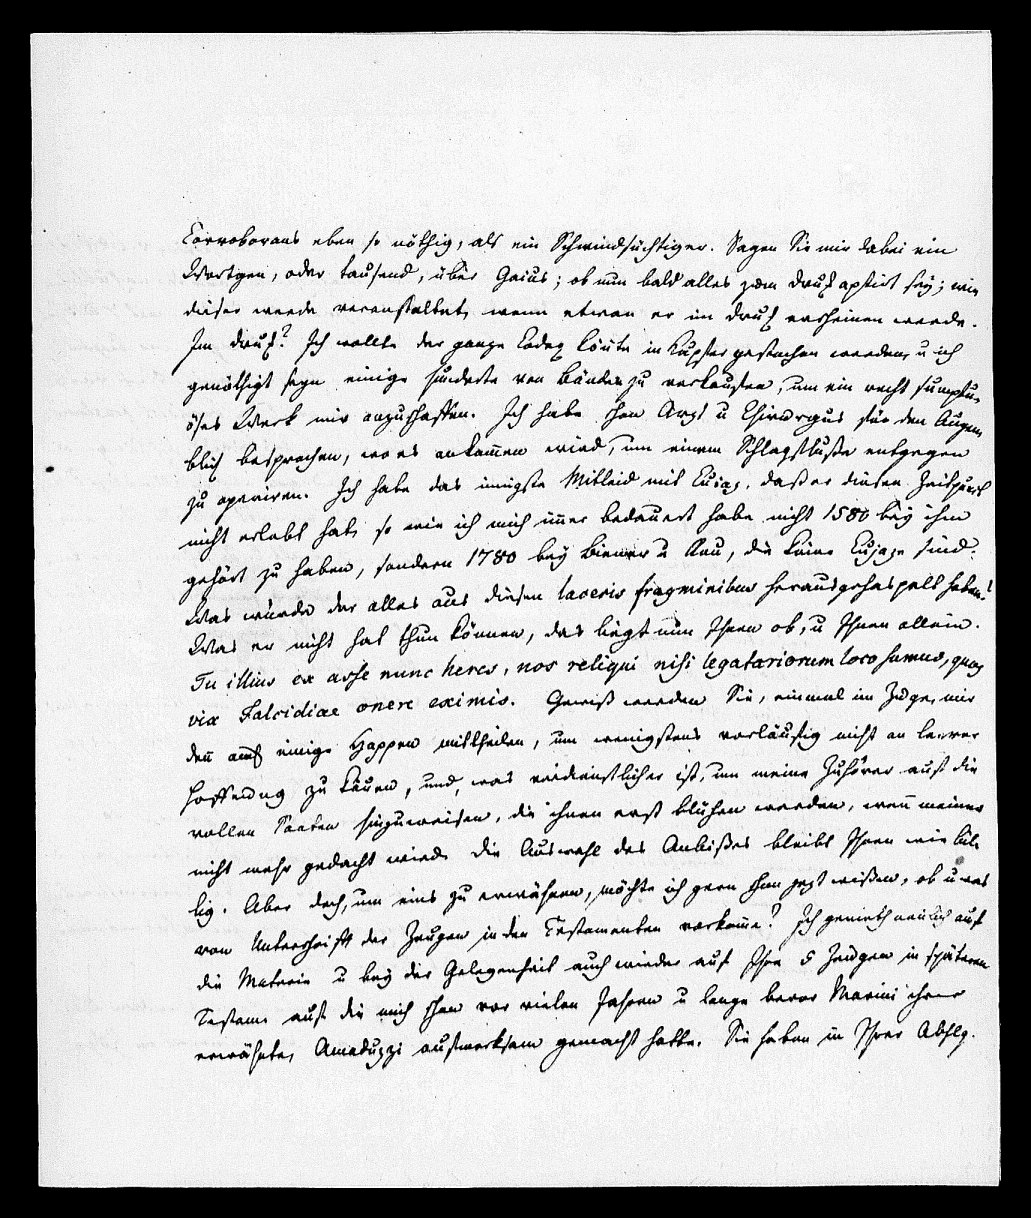 Corroborans eben so nöthig, als ein Schwindsüchtiger. Sagen Sie mir dabei ein
Wörtgen, oder tausend, über Gaius; ob nun bald alles zum Druck aptirt sey; wie
dieser werde veranstaltet, wenn etwan er im Druck erscheinen werde.
Im Druck? Ich wollte der ganze Codex könte in Kupfer gestochen werden, u ich
genöthigt seyn einige hunderte von Bänden zu verkaufen, um ein recht sumptu-
öses Werk mir anzuschaffen. Ich habe schon Arzt u Chirurgus für den Augen-
blick besprochen, wo es ankom̄en wird, um einem Schlagflusse entgegen
zu operiren. Ich habe das innigste Mitleid mit Cujaz, daß er diesen Zeitpunct
nicht erlebt hat, so wie ich mich im̄er bedauert habe nicht 1580 bey ihm
gehört zu haben, sondern 1780 bey Biener u Rau, die keine Cujaze sind.
Was würde der alles aus diesen laceris fragminibus herausgehaspelt haben!
Was er nicht hat thun können, das liegt nun Ihnen ob, u Ihnen allein.
Tu illius ex asse nunc heres, nos reliqui nisi legatariorum loco sumus, quos
vix Falcidiae onere eximis. Gewiß werden Sie, einmal im Zuge, mir
den̄ auch einige Happen mittheilen, um wenigstens vorläufig nicht an leerer
Hoffnung zu käuen, und, was verdienstlicher ist, um meine Zuhörer auf die
vollen Saaten hinzuweisen, die ihnen erst blühen werden, wen̄ meiner
nicht mehr gedacht wird. Die Auswahl des Anbisses bleibt Ihnen wie bil-
lig. Aber doch, um eins zu erwähnen, möchte ich gern schon jezt wissen, ob u was
von Unterschrift der Zeugen in den Testamenten vorkom̄e? Ich gerieth neulich auf
die Materie u bey der Gelegenheit auch wieder auf Ihre 5 Zeugen in späteren
Testam. auf die mich schon vor vielen Jahren u lange bevor Marini ihrer
erwähnte, Amaduzzi aufmerksam gemacht hatte. Sie haben in Ihrer Abhlg.